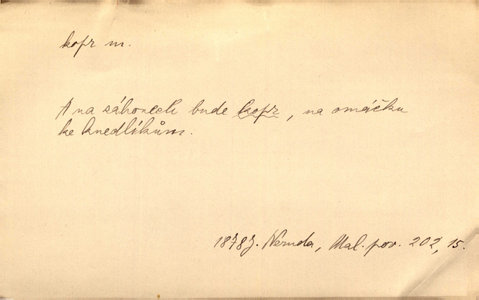 kopr m.
A na záhonech bude kopr, na omáčku
ke knedlíkům.
1878 J. Neruda, Mal. pov. 202, 15.